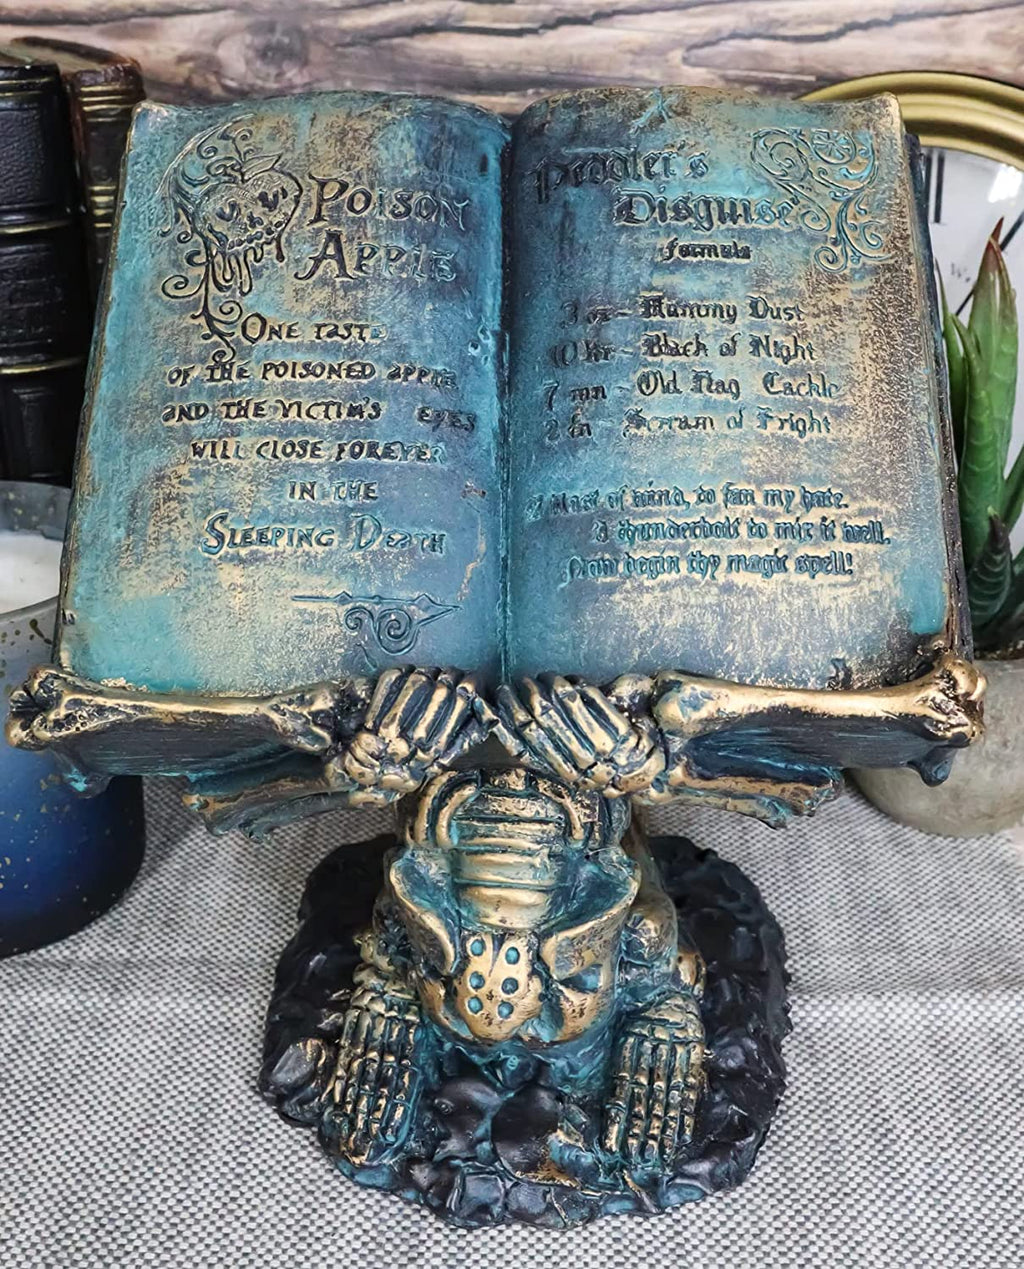 POISON
APPLE
ONE TASTE
OF THE POISONED APPLE
AND THE VICTIM'S EYES
WILL CLOSE FOREVER
IN THE
SLEEPING DEATH
Peddler's
Disguise
formula
3 oz - Mummy Dust
10 Hr - Black of Night
7 mn - Old Hag Cackle
2 Scream of Fright
A blast of wind, to fan my hate.
A thunderbolt to mix it well.
Now begin thy magic spell!